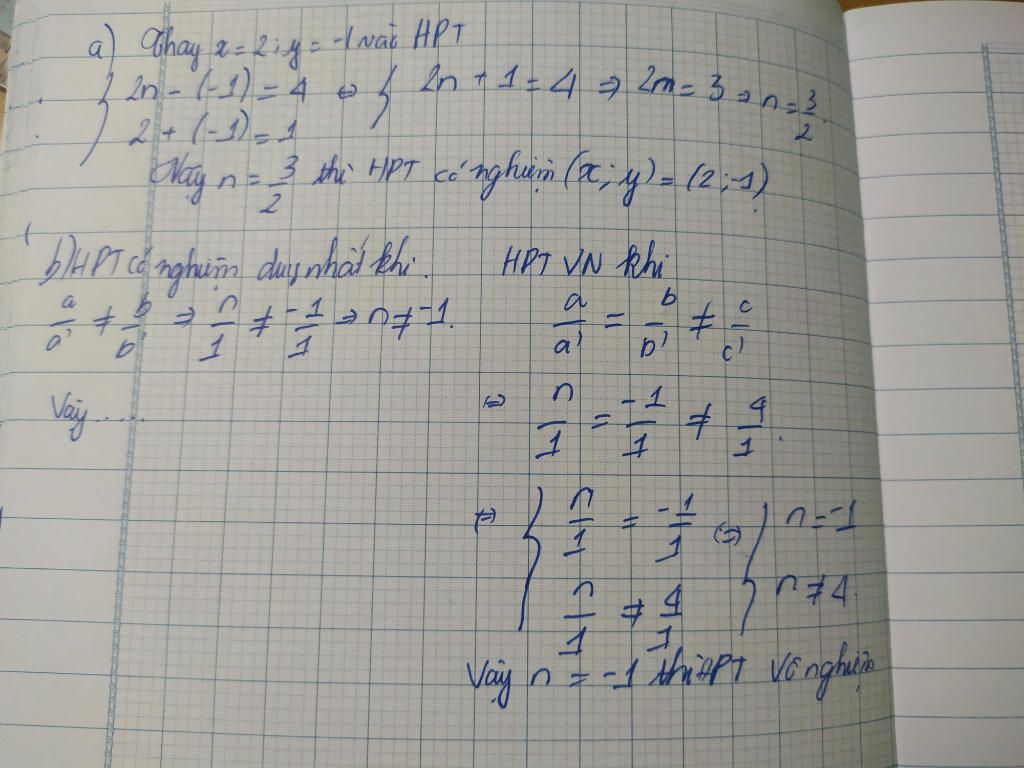 a) Thay x = 2 ; y = -1 vào HPT
{ 2n - (-1) = 4 ⇔ { 2n + 1 = 4 ⇒ 2m = 3 ⇒ n = 3/2.
2 + (-1) = 1
Vậy n = 3/2 thì HPT có nghiệm (x; y) = (2; -1)
b) HPT có nghiệm duy nhất khi.
a/a' ≠ b/b' ⇒ n/1 ≠ -1/1 ⇒ n ≠ -1.
Vậy .....
HPT VN khi
a/a' = b/b' ≠ c/c'
⇔ n/1 = -1/1 ≠ 4/1.
⇔ { n/1 = -1/1 ⇔ { n = -1
n/1 ≠ 4/1 n ≠ 4.
Vậy n = -1 thì HPT vô nghiệm